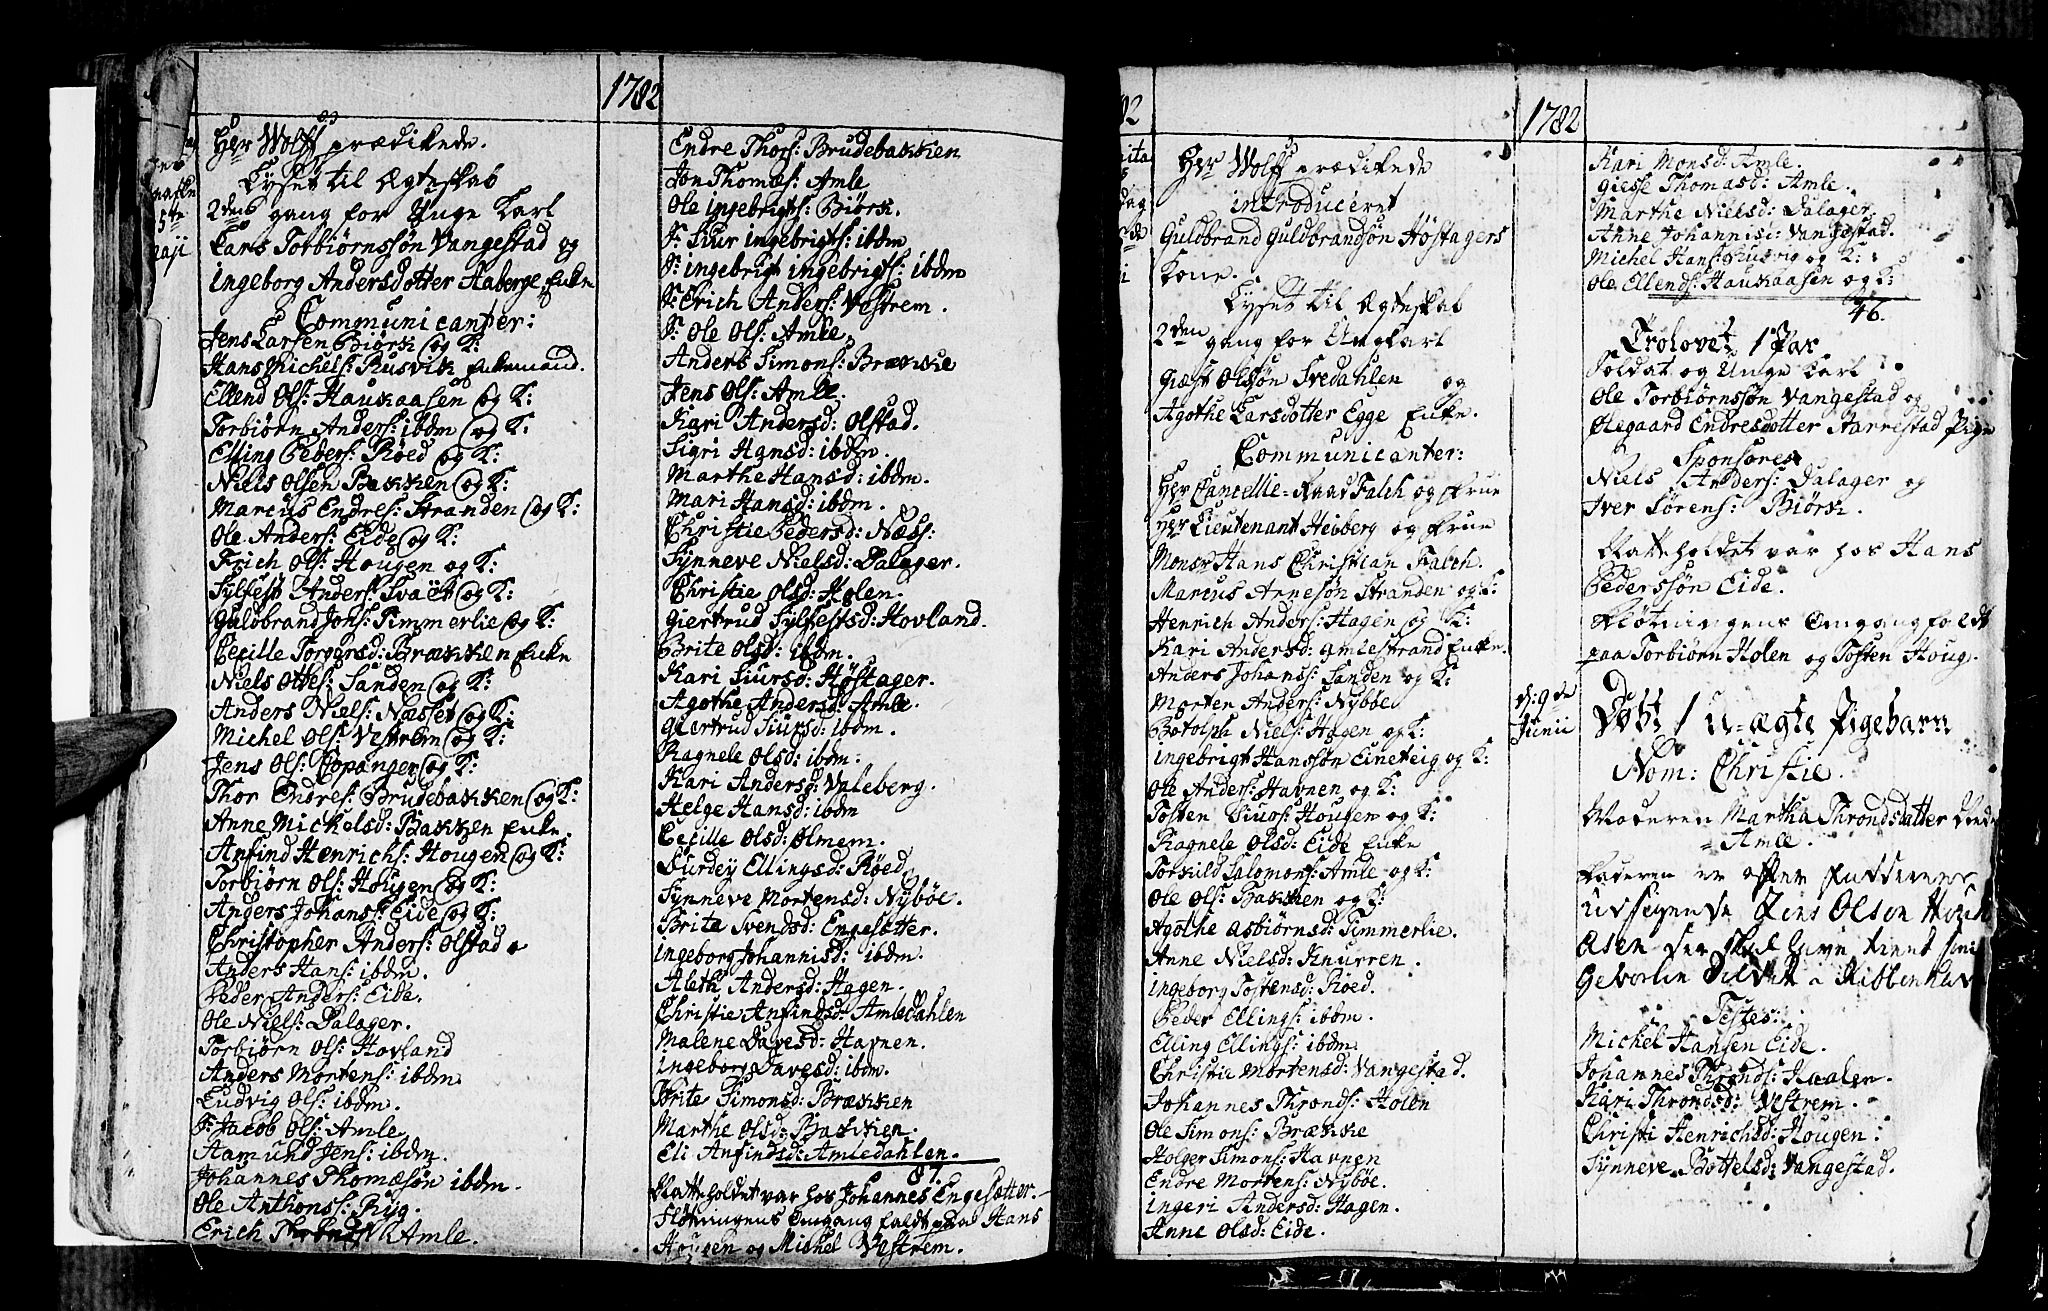 1782
Hr Wolff prædikede.
Lyset til Ægteskab
2den gang for Unge Karl
Lars Torbiørnssøn Vangestad og
Ingeborg Andersdotter Haaberge Enke
Communicanter:
Jens Larsen Biørk og K:
Hans Michels: Husvik Enkemand.
Ellend Ols: Haukaasen og K:
Torbiørn Anders: ibdm og K:
Elling Peders: Røed og K:
Niels Olsen Bakken og K:
Marcus Endres: Stranden og K:
Ole Anders: Eide og K:
Erich Ols: Hougen og K:
Sylfest Anders: og K:
Guldbrand Jons: Timmerlie og K:
Cecille Torgersd: Brækken Enke
Niels Ottes: Sanden og K:
Anders Niels: Næsset og K:
Michel Ols: Vestrem og K:
Jens Ols: Kopanger og K:
Thor Endres: Brudebakken og K:
Anne Michelsd: Bakken Enke.
Anfind Henrichs: Hougen og K:
Torbiørn Ols: Hougen og K:
Anders Johans: Eide og K:
Christopher Anders: Olstad.
Anders Hans: ibdm.
Peder Anders: Eide.
Ole Niels: Dalager.
Torbiørn Ols: Hovland
Anders Mortens: ibdm
Ludvig Ols: ibdm.
Jacob Ols: Amle
Aamund Jens: ibdm.
Johannes Thomæsøn ibdm.
Ole Anthons: Ryg.
Erich Amle.
Endre Thors: Brudebakken
Jon Thomæs: Amle
Ole Ingebrigts: Biørk.
Siur Ingebrigts: ibdm
Ingebrigt Ingebrigts: ibdm
Erich Anders: Vestrem.
Ole Ols: Amle
Anders Simons: Brække
Jens Ols: Amle.
Kari Andersd: Olstad.
Sigri Hansd: ibdm.
Marthe Hansd: ibdm.
Mari Hansd: ibdm.
Christie Pedersd: Næss:
Synneve Nielsd: Dalager.
Christie Olsd: Holen.
Giertrud Sylfestsd: Hovland.
Brite Olsd: ibdm.
Kari Siursd: Høstager.
Agothe Andersd: Amle.
Giertrud Siursd: ibdm.
Ragnele Olsd: ibdm:
Kari Andersd: Valeberg.
Helge Hansd: ibdm
Cecille Olsd: Olmem.
Ellingsd: Røed
Synneve Mortensd: Nybøe.
Brite Svendsd: Engesætter.
Ingeborg Johannisd: ibdm.
Aleth Andersd: Hagen.
Christie Anfindsd: Amledahlen
Malene Davesd: Havnen.
Ingeborg Davesd: ibdm.
Brite Simonsd: Brækken
Marthe Olsd: Bakken.
Eli Anfindsd: Amledahlen.
87.
Natteholdet var hos Johannes Engesætter.
Fløtningens Omgang faldt paa Hans
Hougen og Michel Vestrem.
Hr Wolff prædikede
introduceret
Guldbrand Guldbrandsøn Høstagers
Kone.
Lyset til Ægteskab
2den gang for Ungkarl
Giæst Olssøn Svedahlen og
Agothe Larsdotter Egge Enke.
Communicanter:
Hr Cancellie-Raad Falch og Frue
Hr Lieutenant Heiberg og Frue
Monsr Hans Christian Falch.
Marcus Arnesøn Stranden og K:
Henrich Anders: Hagen og K:
Kari Andersd: Amlestrand Enke.
Anders Johans: Sanden og K:
Morten Anders: Nybøe
Botolph Niels: Hagen og K:
Ingebrigt Hanssøn Eineteig og K:
Ole Anders: Havnen og K:
Tosten Siurs: Hougen og K:
Ragnele Olsd: Eide Enke
Torkild Salomons: Amle og K:
Ole Ols: Bakken og K:
Agothe Asbiørnsd: Timmerlie.
Anne Nielsd: Knurren.
Ingeborg Tostensd: Røed.
Peder Ellings: ibdm.
Elling Ellings: ibdm
Christie Mortensd: Vangestad.
Johannes Thronds: Holen
Ole Simons: Brække
Holger Simons: Havnen
Endre Mortens: Nybøe.
Ingeri Andersd: Hagen.
Anne Olsd: Eide.
1782
Kari Monsd: Amle.
Giesse Thomasd: Amle.
Marthe Nielsd: Dalager
Anne Johannisd: Vangestad.
Michel Hans: Husvig og K:
Ole Ellends: Haukaasen og K:
46.
Trolovet 1 Par
Soldat og Unge Karl
Ole Torbiørnssøn Vangestad og
Aagaard Endresdotter Aarrestad Pige
Sponsores
Niels Anders: Dalager og
Iver Sørens: Biørk.
Natteholdet var hos Hans
Pederssøn Eide.
Fløtningens Omgang faldt
paa Torbiørn Holen og Tosten Houg.
d: 9de
Junii
Døbt 1 U-ægte Pigebarn
Nom: Christie.
Moderen Martha Throndsdatter
Amle.
Faderen er efter Fadderenes
udsigende Jens Olsen
Testes:
Michel Hansen Eide.
Johannes Thronds: Haalen.
Kari Throndsd: Vestrem.
Christi Henrichsd: Hougen:
Synneve Bottelsd: Vangestad.